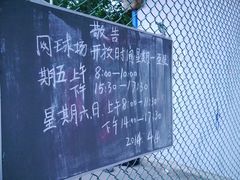 敬告
网球场开放时间星期一至
期五上午 8:00—10:00
下午 15:30—17:30
星期六日.上午8:00—11:30
下午14:00—17:30
2014.4.4